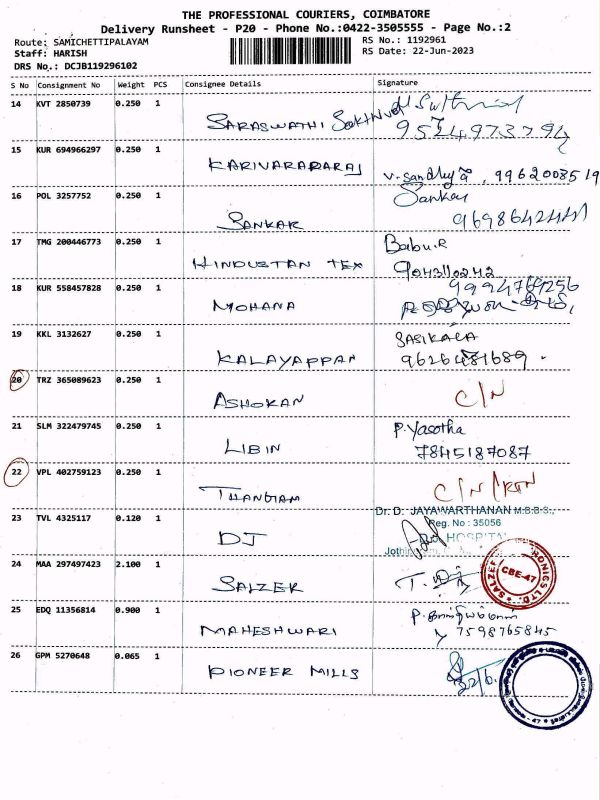 THE PROFESSIONAL COURIERS, COIMBATORE
Delivery Runsheet - P20 - Phone No.:0422-3505555 - Page No.:2
Route: SAMICHETTIPALAYAM
RS No.: 1192961
Staff: HARISH
RS Date: 22-Jun-2023
DRS No.: DCJB119296102
S No Consignment No Weight PCS Consignee Details Signature
14 KVT 2850739 0.250 1 SARASWATHI
15 KUR 694966297 0.250 1 KARIVARADARAJ
v. sandhya, 9962008519
16 POL 3257752 0.250 1 SANKAR Sankar
17 TMG 200446773 0.250 1 HINDUSTAN TEX Babu.R
9043110242
18 KUR 558457828 0.250 1 MOHANA 9994769256
19 KKL 3132627 0.250 1 KALAYAPPAN SASIKALA
9626481689.
20 TRZ 365089623 0.250 1 ASHOKAN C/N
21 SLM 322479745 0.250 1 LIBIN P. Yasotha
7845187087
22 VPL 402759123 0.250 1 THANGAM C/N/RTN
23 TVL 4325117 0.120 1 DJ Dr. D. JAYAWARTHANAN M.B.B.S.,
Reg. No : 35056
HOSPITAL
24 MAA 297497423 2.100 1 SALZER
SALZER
CBE-47
25 EDQ 11356814 0.900 1 MAHESHWARI
7598765845
26 GPM 5270648 0.065 1 PIONEER MILLS